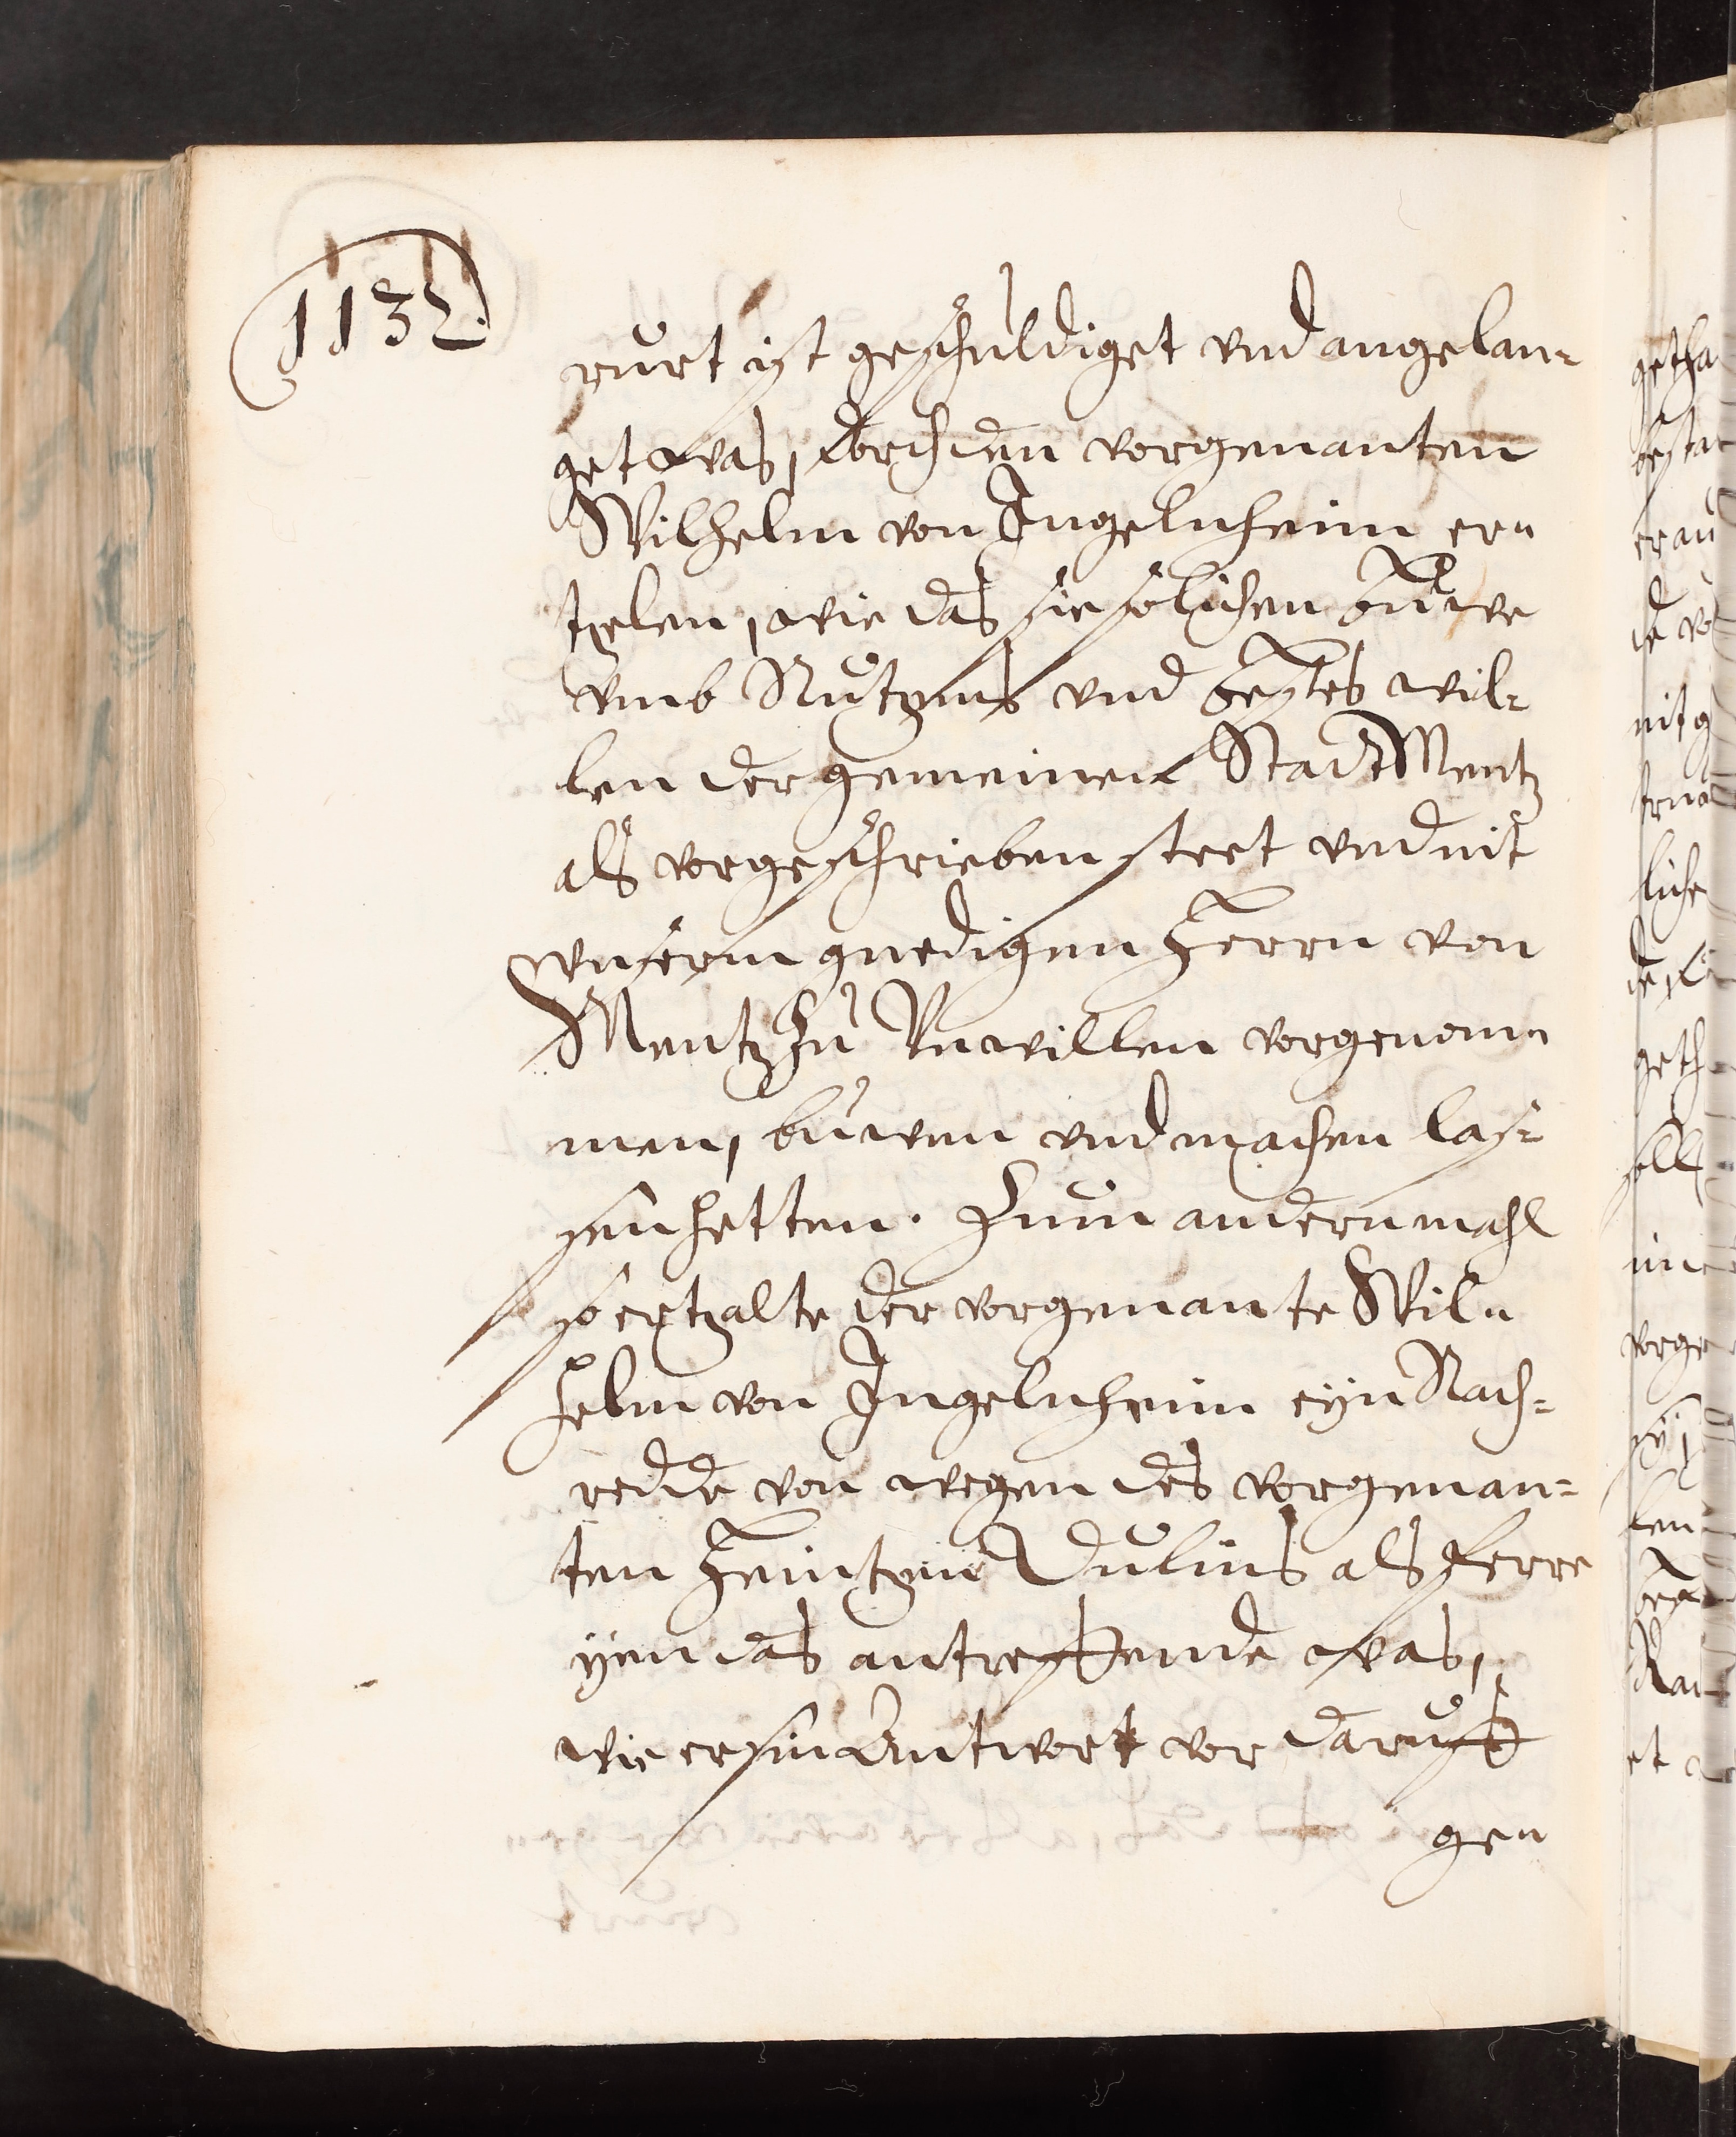 1132.
rurt ist geschuldiget vnd angelan-
get was, dorch den vorgenanten
Wilhelm von Ingelnheim er-
tzelen, wie das sie solichen buwe
vmb Nutzens vnd bestes wil-
len der gemeinen Stadt Mentz
als vorgeschrieben steet vnd nit
vnserm gnedigen Herrn von
Mentz zu Vnwillen vorgenom-
men, buwen vnd machen las-
sen hetten. Zum andern mahl
so ertzalte der vorgenante Wil-
helm von Ingelnheim eyn Nach-
redde von wegen des vorgenan-
ten Heintzen Dulins als ferre
yen das antreffende was,
wie er sin Antwort vor daruff
gen